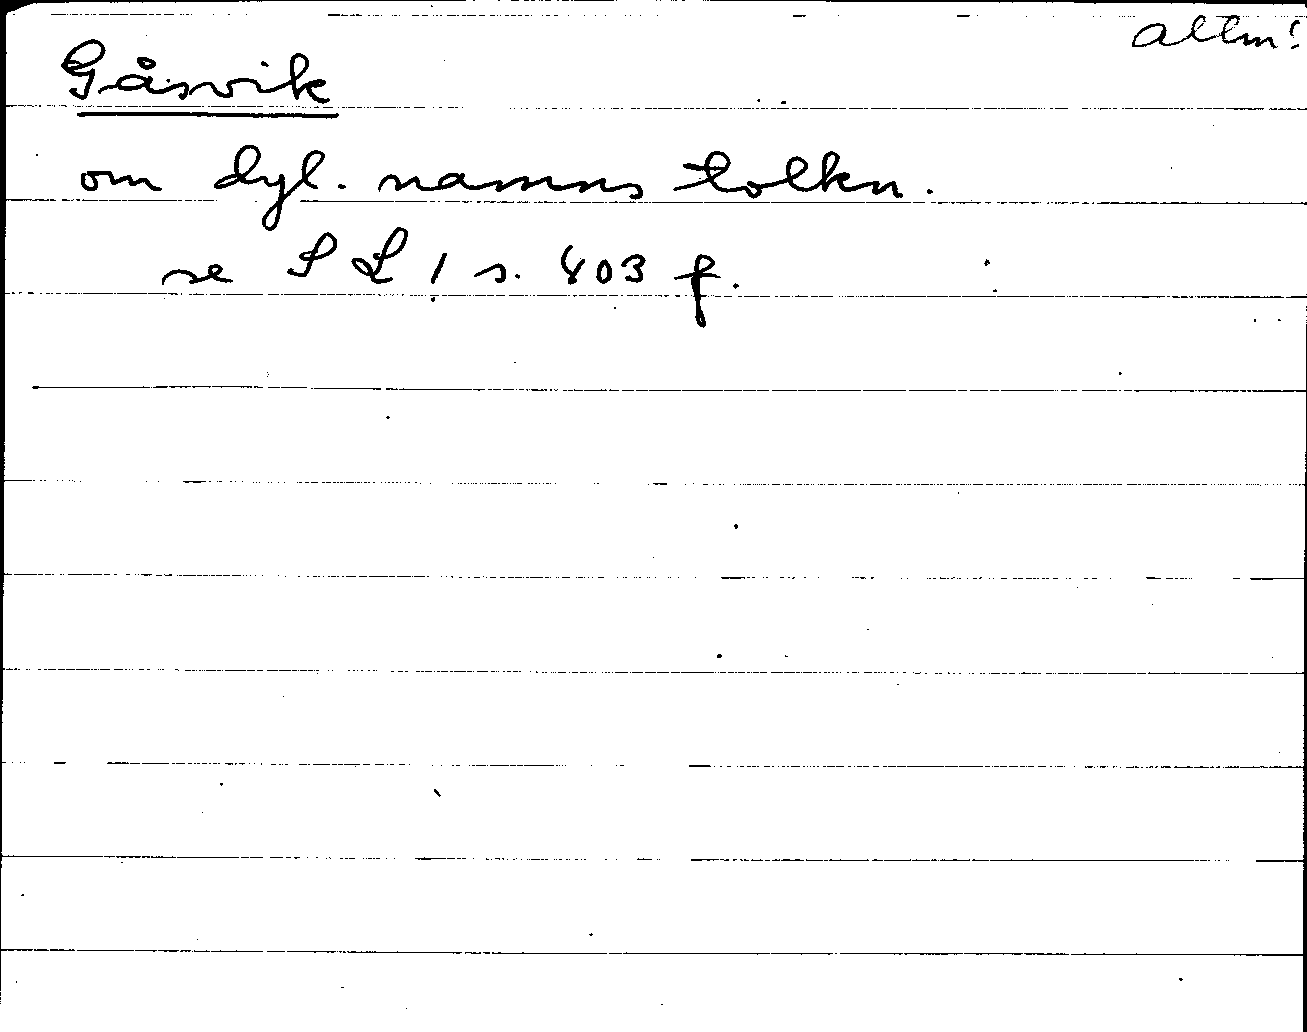 allm!
Gåsvik
om dyl. namns tolkn.
se SL 1 s. 403 f.